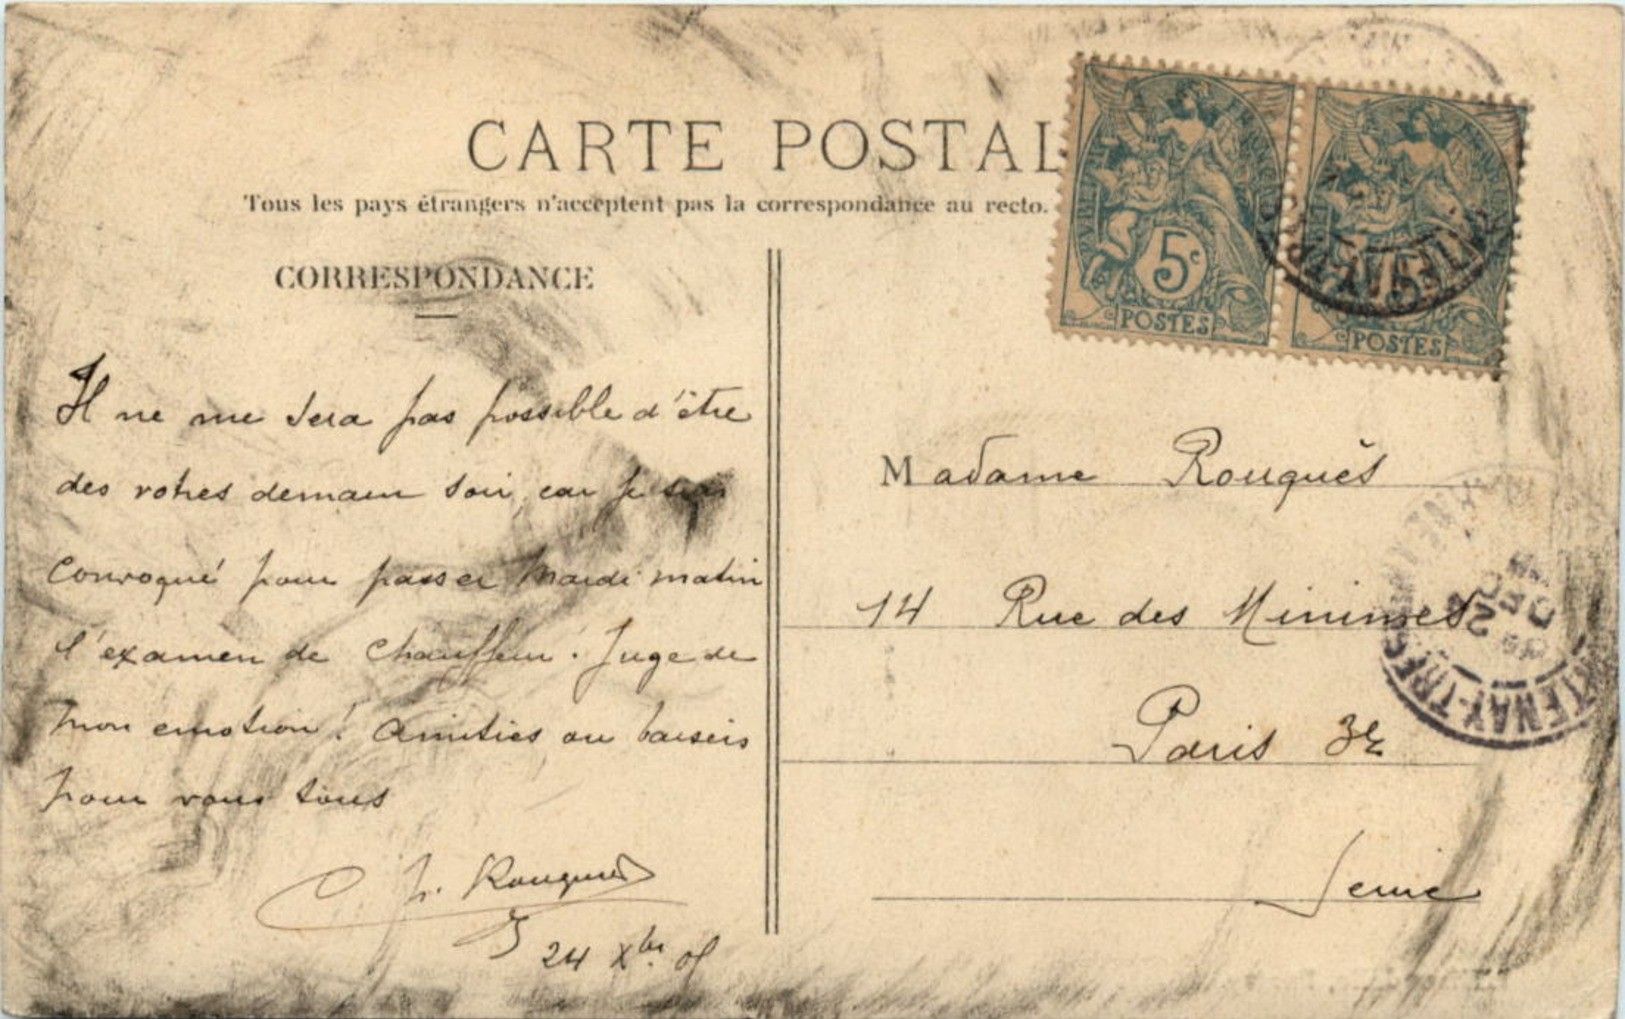 CARTE POSTAL
Tous les pays étrangers n'acceptent pas la correspondance au recto.
CORRESPONDANCE
5c
POSTES
5
POSTES
Il ne me sera pas possible d'être
des votres demain soir, car je suis
convoqué pour passer Mardi matin
l'examen de chauffeur. Juge de
mon emotion! Amitiés ou baisers
pour vous tous
Rouquès
24 Xbre 05
Madame Rouquès
14 Rue des Minimes
Paris 3e
Seine